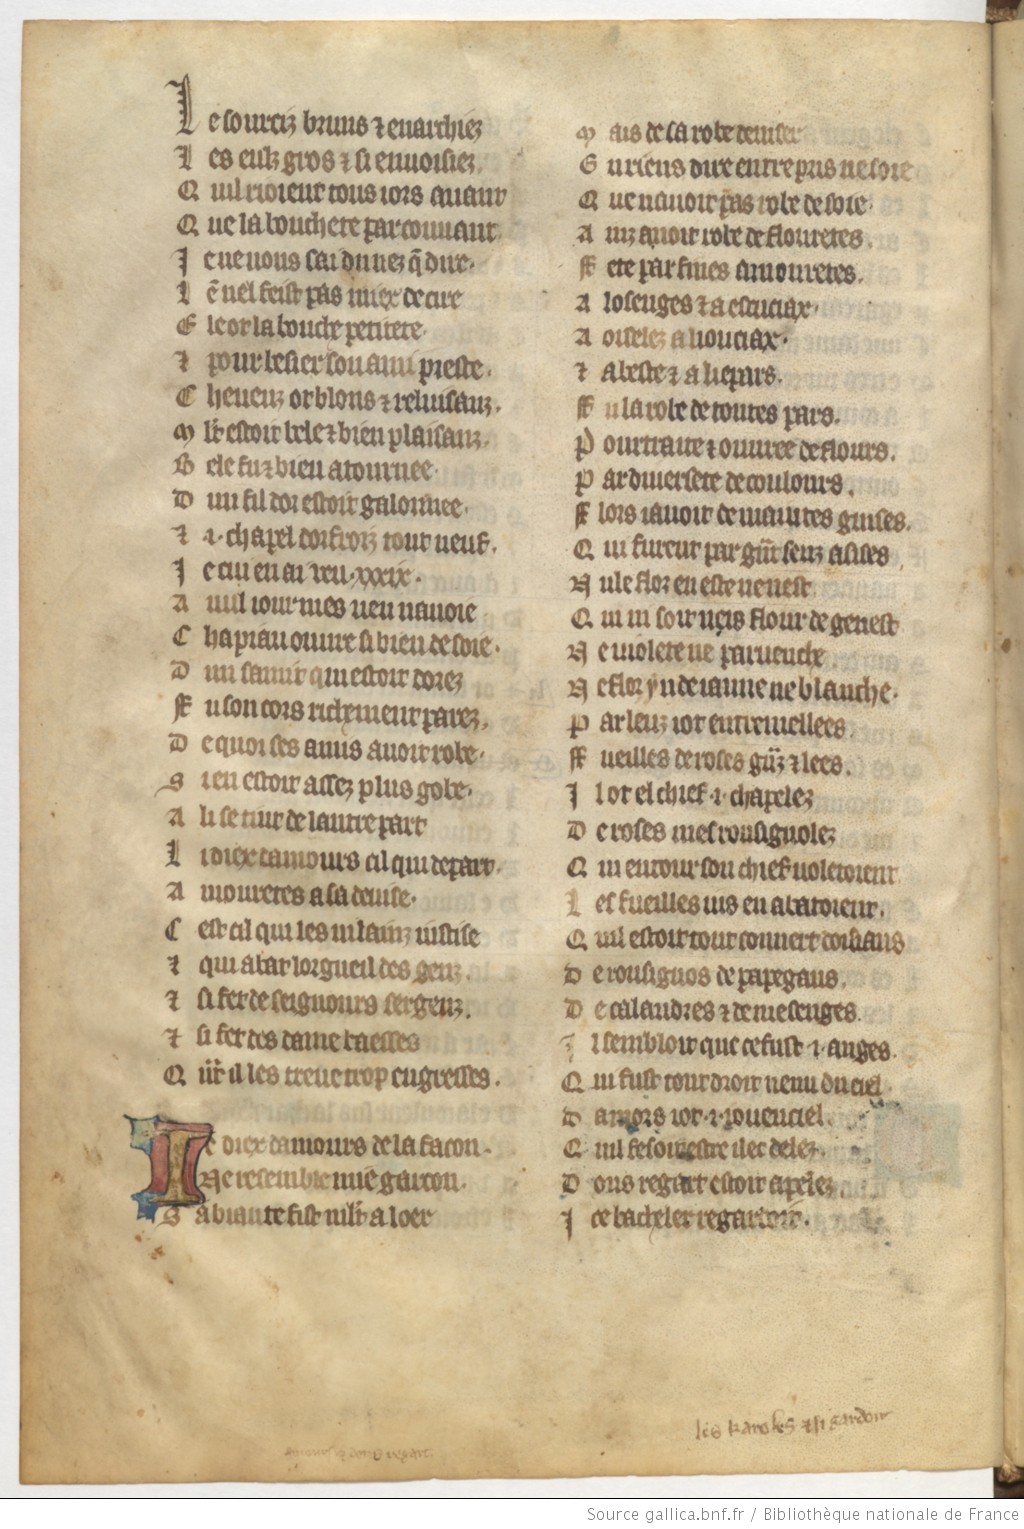 Le sourciz bruns ⁊ enarchiez
Les eulz gros ⁊ si enuoisiez
Quil rioient tous iors auant
Que la bouchete par conuant
Je ne uous sai du nez q̄ dire.
Lē nel feist pas miex de cire
Ele ot la bouche petitete.
⁊ pour besier son ami preste.
Cheueuz ot blons ⁊ reluisanz.
Ml't estoit bele ⁊ bien plaisanz.
Bele fu ⁊ bien atournee.
Dun fil dor estoit galonnee.
⁊ .i. chapel dorfroiz tout neuf.
Je qui en ai ueu .xxix.
A nul iour mes ueu nauoie
Chapiau ouure si bien de soie.
Dun samit qui estoit dorez
Fu son cors richement parez.
De quoi ses amis auoit robe.
Sien estoit assez plus gobe.
A li se tint de lautre part
Li diex damours cil qui depart.
Amouretes a sa deuise.
Cest cil qui les uilainz iustise
⁊ qui abat lorgueil des genz.
⁊ si fet de seignours sergenz.
⁊ si fet des dame baesses
Qñt il les treuue trop engresses.
Le diex damours de la facon.
Ne resemble mie garcon.
Sa biaute fist ml't a loer
Mais de sa robe deuiser
Criens dire entrepris ne soie
Que nauoit pas robe de soie.
Ainz auoit robe de flouretes.
Fete par fines amouretes.
A losenges ⁊ a escuciax.
A oiselez a lionciax.
⁊ a beste ⁊ a liepars.
Fu la robe de toutes pars.
Pourtraite ⁊ ouuree de flours.
Par diuersete de coulours.
Flors i auoit de maintes guises.
Qui furent par gñt senz asises
Nule flor en este ne nest
Qui ni soit neis flour de genest
Ne uiolete ne paruenche
Ne flor ynde iaune ne blanche.
Par leuz iot entremellees.
Fueilles de roses gñz ⁊ lees.
Il ot el chief .i. chapelez
De roses mes rousignolez
Qui entour son chief uoletoient
Les fueilles ius en abatoient.
Quil estoit tout couuert doisiaus
De rousignos de papegaus.
De calandres ⁊ de mesenges.
Il sembloit que ce fust .i. anges.
Qui fust tout droit uenu du ciel.
Damors iot .i. iouenciel.
Quil fesoit estre ilec delez.
Dous regart estoit apelez
Ice bacheler regartoit.
les karoles ⁊ si gardoit